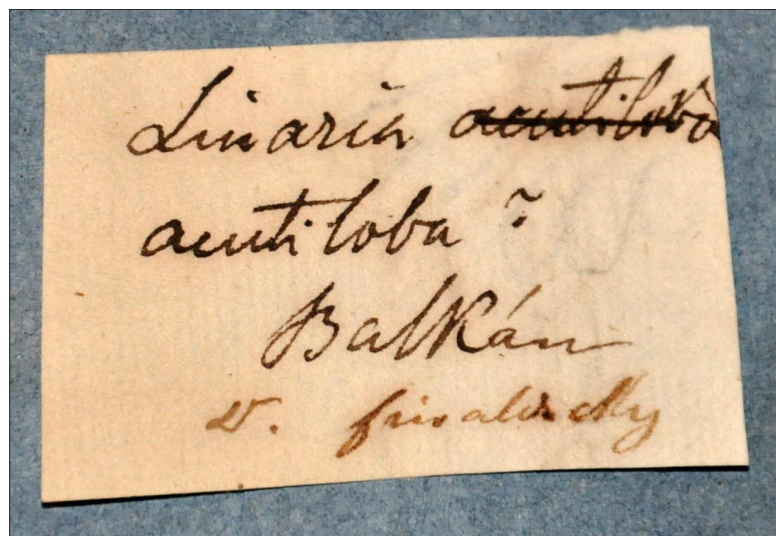 Linaria acutiloba
acutiloba ?
Balkán
D. frivaldszky